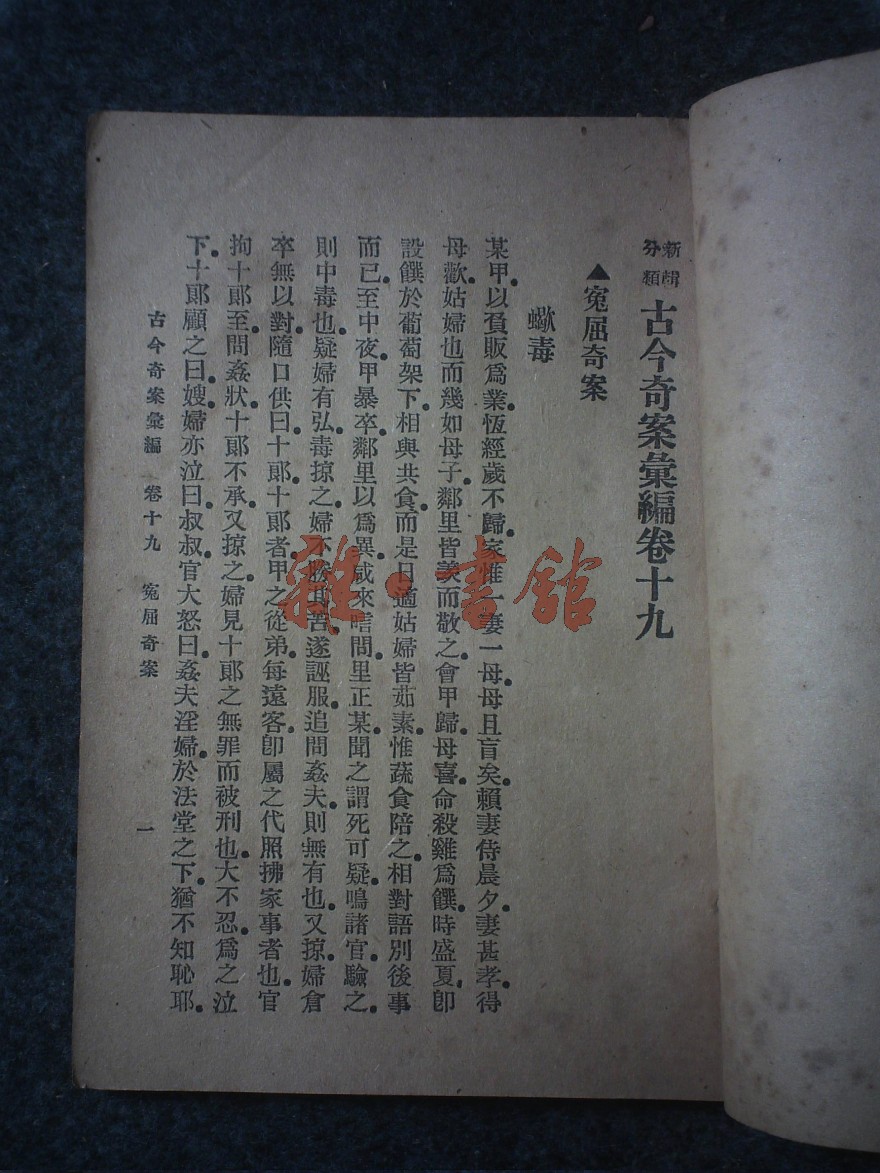 新輯分類 古今奇案彙編卷十九
▲冤屈奇案
蠍毒
某甲以負販爲業。恆經歲不歸。家惟一妻一母。母且盲矣。賴妻侍晨夕。妻甚孝。得
母歡。姑婦也而幾如母子。鄰里皆羨而敬之。會甲歸。母喜。命殺雞爲饌。時盛夏。卽
設饌於葡萄架下。相與共食。而是日適姑婦皆茹素。惟蔬食陪之。相對語別後事
而已。至中夜。甲暴卒。鄰里以爲異。咸來嘻問。里正某聞之。謂死可疑。鳴諸官。驗之。
則中毒也。疑婦有弘毒。掠之。婦不勝其苦。遂誣服。追問姦夫。則無有也。又掠。婦倉
卒無以對。隨口供曰十郞。十郞者。甲之從弟。每遠客。卽屬之代照拂家事者也。官
拘十郞至。問姦狀。十郞不承。又掠之。婦見十郞之無罪而被刑也。大不忍。爲之泣
下。十郞顧之曰。嫂。婦亦泣曰。叔叔。官大怒曰。姦夫淫婦。於法堂之下。猶不知恥耶。
古今奇案彙編 卷十九 冤屈奇案 一
雜·書館